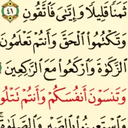 ثَمَنًا قَلِيلًا وَإِيَّٰىَ فَٱتَّقُونِ ٤١
وَتَكْتُمُوا۟ ٱلْحَقَّ وَأَنتُمْ تَعْلَمُونَ
ٱلزَّكَوٰةَ وَٱرْكَعُوا۟ مَعَ ٱلرَّٰكِعِينَ
وَتَنسَوْنَ أَنفُسَكُمْ وَأَنتُمْ تَتْلُو